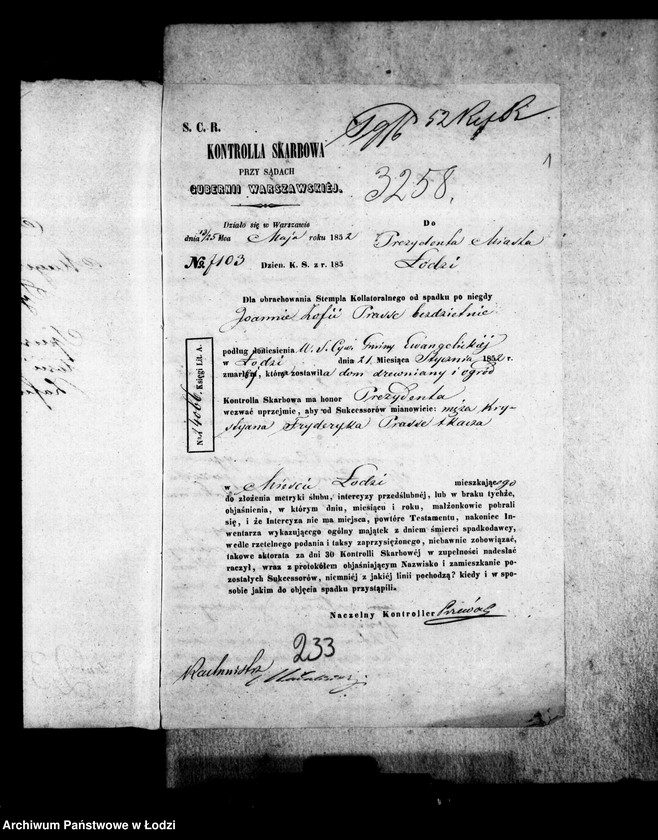 S. C. R.
52
KONTROLLA SKARBOWA
PRZY SĄDACH
GUBERNII WARSZAWSKIÉJ.
1
3258.
Działo się w Warszawie
dnia 13/25 Mca Maja roku 1852
Do
Prezydenta Miasta
Łodzi
№ 7103 Dzien. K. S. z r. 185
Dla obrachowania Stempla Kollateralnego od spadku po niegdy
Joannie Zofii Prasse bezdzietnie
podług doniesienia U. S. Cyw. Gminy Ewangelickiéj
w Łodzi dnia 21 Miesiąca Stycznia 1852 r.
zmarłéj, która zostawiła dom drewniany i ogród
Kontrolla Skarbowa ma honor Prezydenta
wezwać uprzejmie, aby od Sukcessorów mianowicie: męża Kry-
styana Fryderyka Prasse tkacza
Księgi Lit. A.
w Mieście Łodzi mieszkającego
do złożenia metryki ślubu, intercyzy przedślubnéj, lub w braku tychże,
objaśnienia, w którym dniu, miesiącu i roku, małżonkowie pobrali
się, i że Intercyza nie ma miejsca, powtóre Testamentu, nakoniec In-
wentarza wykazującego ogólny majątek z dniem śmierci spadkodawcy,
wedle rzetelnego podania i taksy zaprzysiężonego, niebawnie zobowiązać,
takowe aktorata za dni 30 Kontrolli Skarbowéj w zupełności nadesłać
raczył, wraz z protokółem objaśniającym Nazwisko i zamieszkanie po-
zostałych Sukcessorów, niemniéj z jakiéj linii pochodzą? kiedy i w spo-
sobie jakim do objęcia spadku przystąpili.
Naczelny Kontroller
233
Archiwum Państwowe w Łodzi